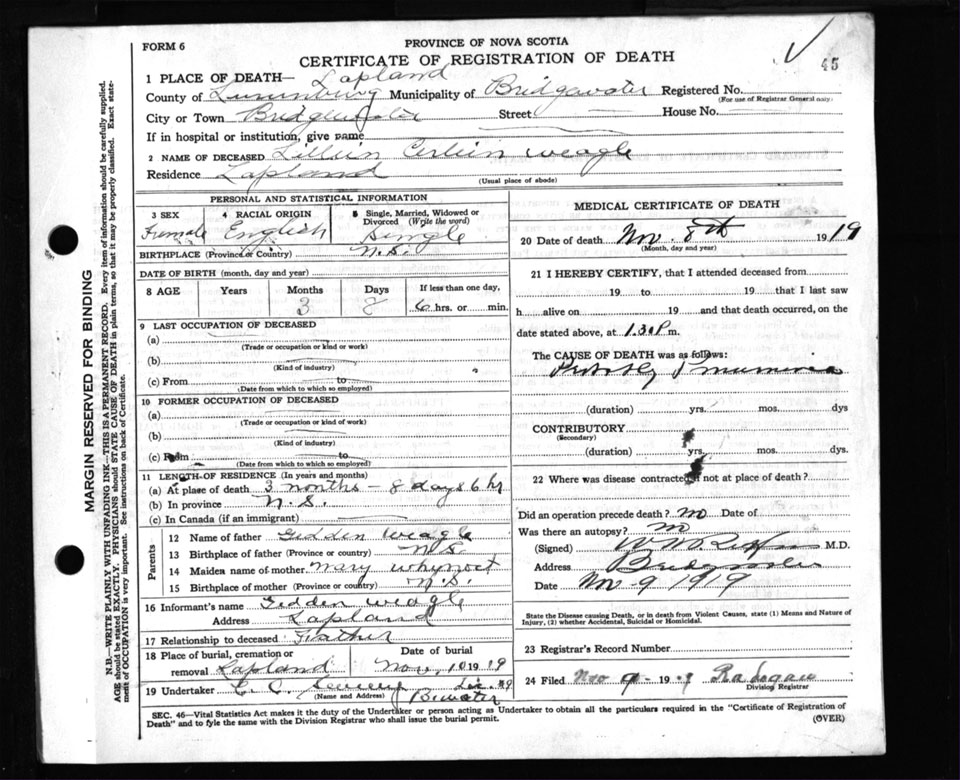 FORM 6
PROVINCE OF NOVA SCOTIA
CERTIFICATE OF REGISTRATION OF DEATH
45
1 PLACE OF DEATH— Lapland
County of Lunenburg Municipality of Bridgewater Registered No.
(For use of Registrar General only)
City or Town Bridgewater Street House No.
If in hospital or institution, give name
2 NAME OF DECEASED Weagle
Residence Lapland
(Usual place of abode)
PERSONAL AND STATISTICAL INFORMATION
3 SEX Female
4 RACIAL ORIGIN English
5 Single, Married, Widowed or Divorced (Write the word) Single
BIRTHPLACE (Province or Country) N.S.
DATE OF BIRTH (month, day and year)
8 AGE Years Months 3 Days 8 If less than one day, 6 hrs. or min.
9 LAST OCCUPATION OF DECEASED
(a)
(Trade or occupation or kind or work)
(b)
(Kind of industry)
(c) From to
(Date from which to which so employed)
10 FORMER OCCUPATION OF DECEASED
(a)
(Trade or occupation or kind of work)
(b)
(Kind of industry)
(c) From to
(Date from which to which so employed)
11 LENGTH OF RESIDENCE (In years and months)
(a) At place of death 3 months - 8 days 6 hr
(b) In province N.S.
(c) In Canada (if an immigrant)
Parents
12 Name of father Gedden Weagle
13 Birthplace of father (Province or country) N.S.
14 Maiden name of mother Mary Whynoct
15 Birthplace of mother (Province or country) N.S.
16 Informant's name Gedden Weagle
Address Lapland
17 Relationship to deceased Father
18 Place of burial, cremation or removal Lapland
Date of burial Nov. 10 1919
19 Undertaker C. C.
(Name and Address) B.water
MEDICAL CERTIFICATE OF DEATH
20 Date of death Nov. 8th 1919
(Month, day and year)
21 I HEREBY CERTIFY, that I attended deceased from
19 to 19 that I last saw
h alive on 19 and that death occurred, on the
date stated above, at 1.30 P m.
The CAUSE OF DEATH was as follows:
Probably Pneumonia
(duration) yrs. mos. dys
CONTRIBUTORY
(Secondary)
(duration) yrs. mos. dys.
22 Where was disease contracted if not at place of death?
Did an operation precede death? no Date of
Was there an autopsy? no
(Signed) M.D.
Address Bridgewater
Date Nov 9 1919
State the Disease causing Death, or in death from Violent Causes, state (1) Means and Nature of
Injury, (2) whether Accidental, Suicidal or Homicidal.
23 Registrar's Record Number
24 Filed Nov 9 - 19
Division Registrar
SEC. 46—Vital Statistics Act makes it the duty of the Undertaker or person acting as Undertaker to obtain all the particulars required in the "Certificate of Registration of
Death" and to fyle the same with the Division Registrar who shall issue the burial permit.
(OVER)
MARGIN RESERVED FOR BINDING
N.B.—WRITE PLAINLY WITH UNFADING INK—THIS IS A PERMANENT RECORD. Every item of information should be carefully supplied.
AGE should be stated EXACTLY. PHYSICIANS should STATE CAUSE OF DEATH in plain terms, so that it may be properly classified. Exact state-
ment of OCCUPATION is very important. See instructions on back of Certificate.